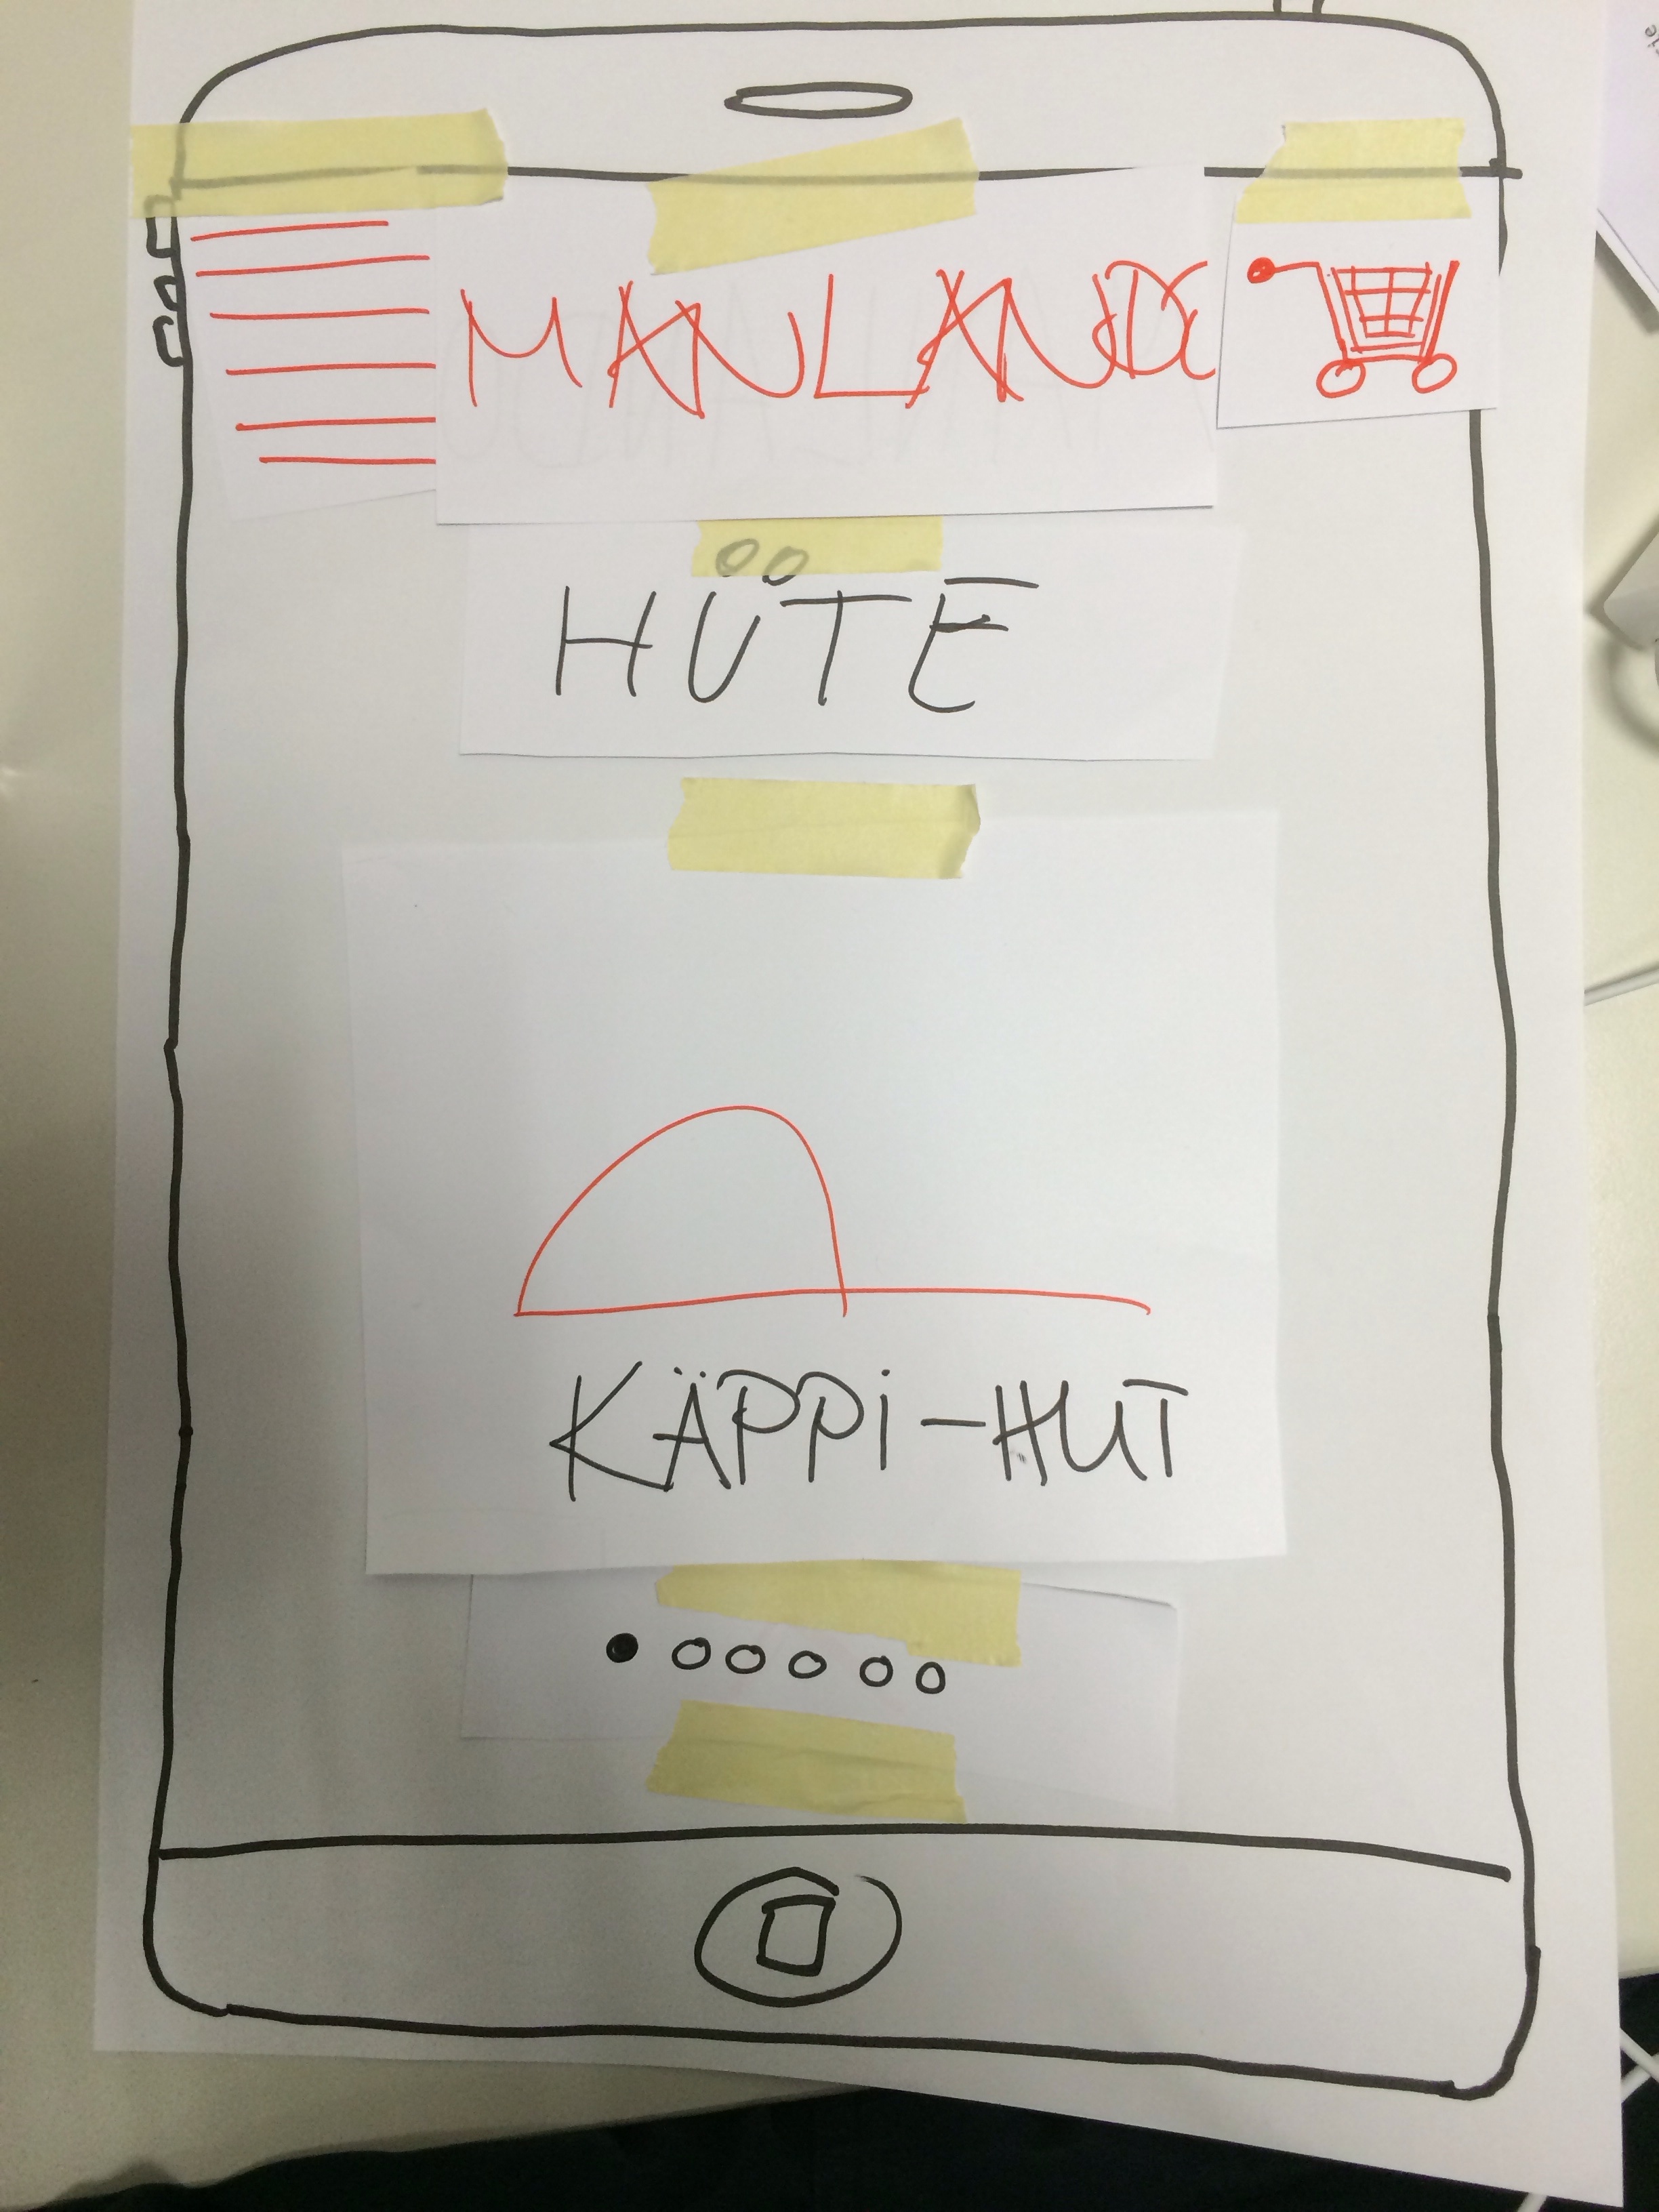 MANLAND
HÜTE
KÄPPI-HUT